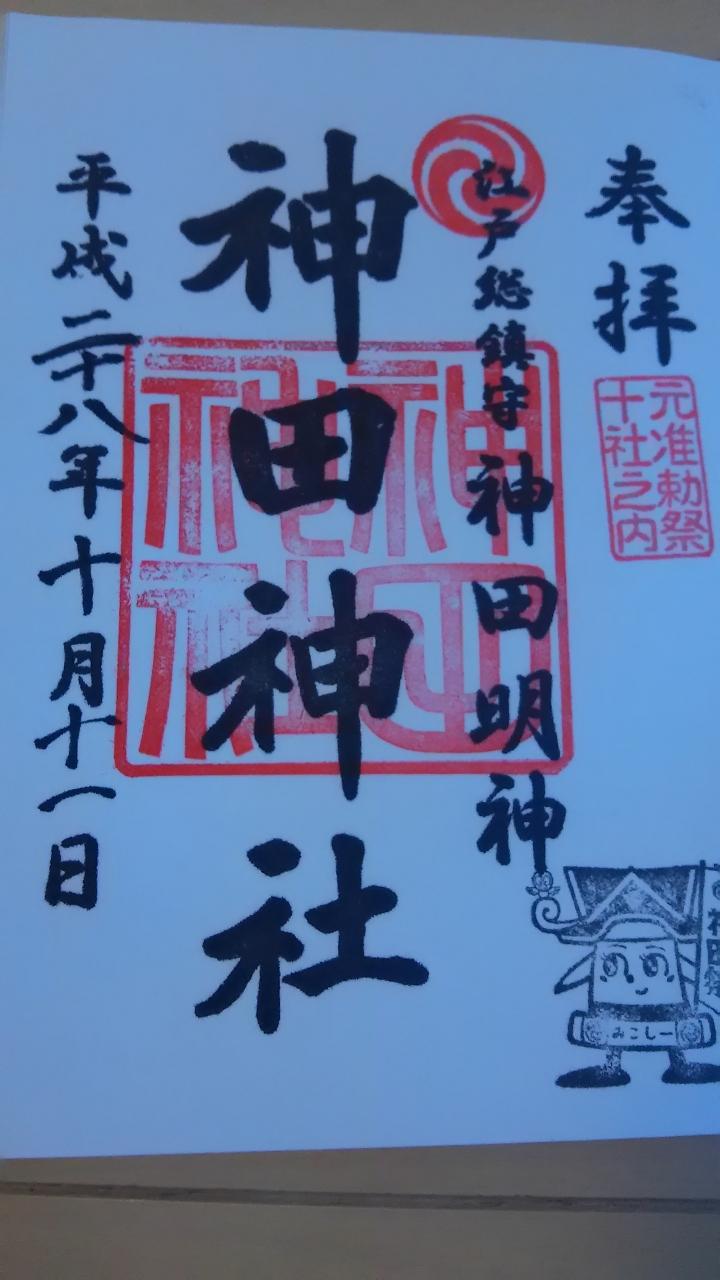 奉拝
元准勅祭
十社之内
江戸総鎮守 神田明神
神田神社
神田神社
平成二十八年十月十一日
みこしー